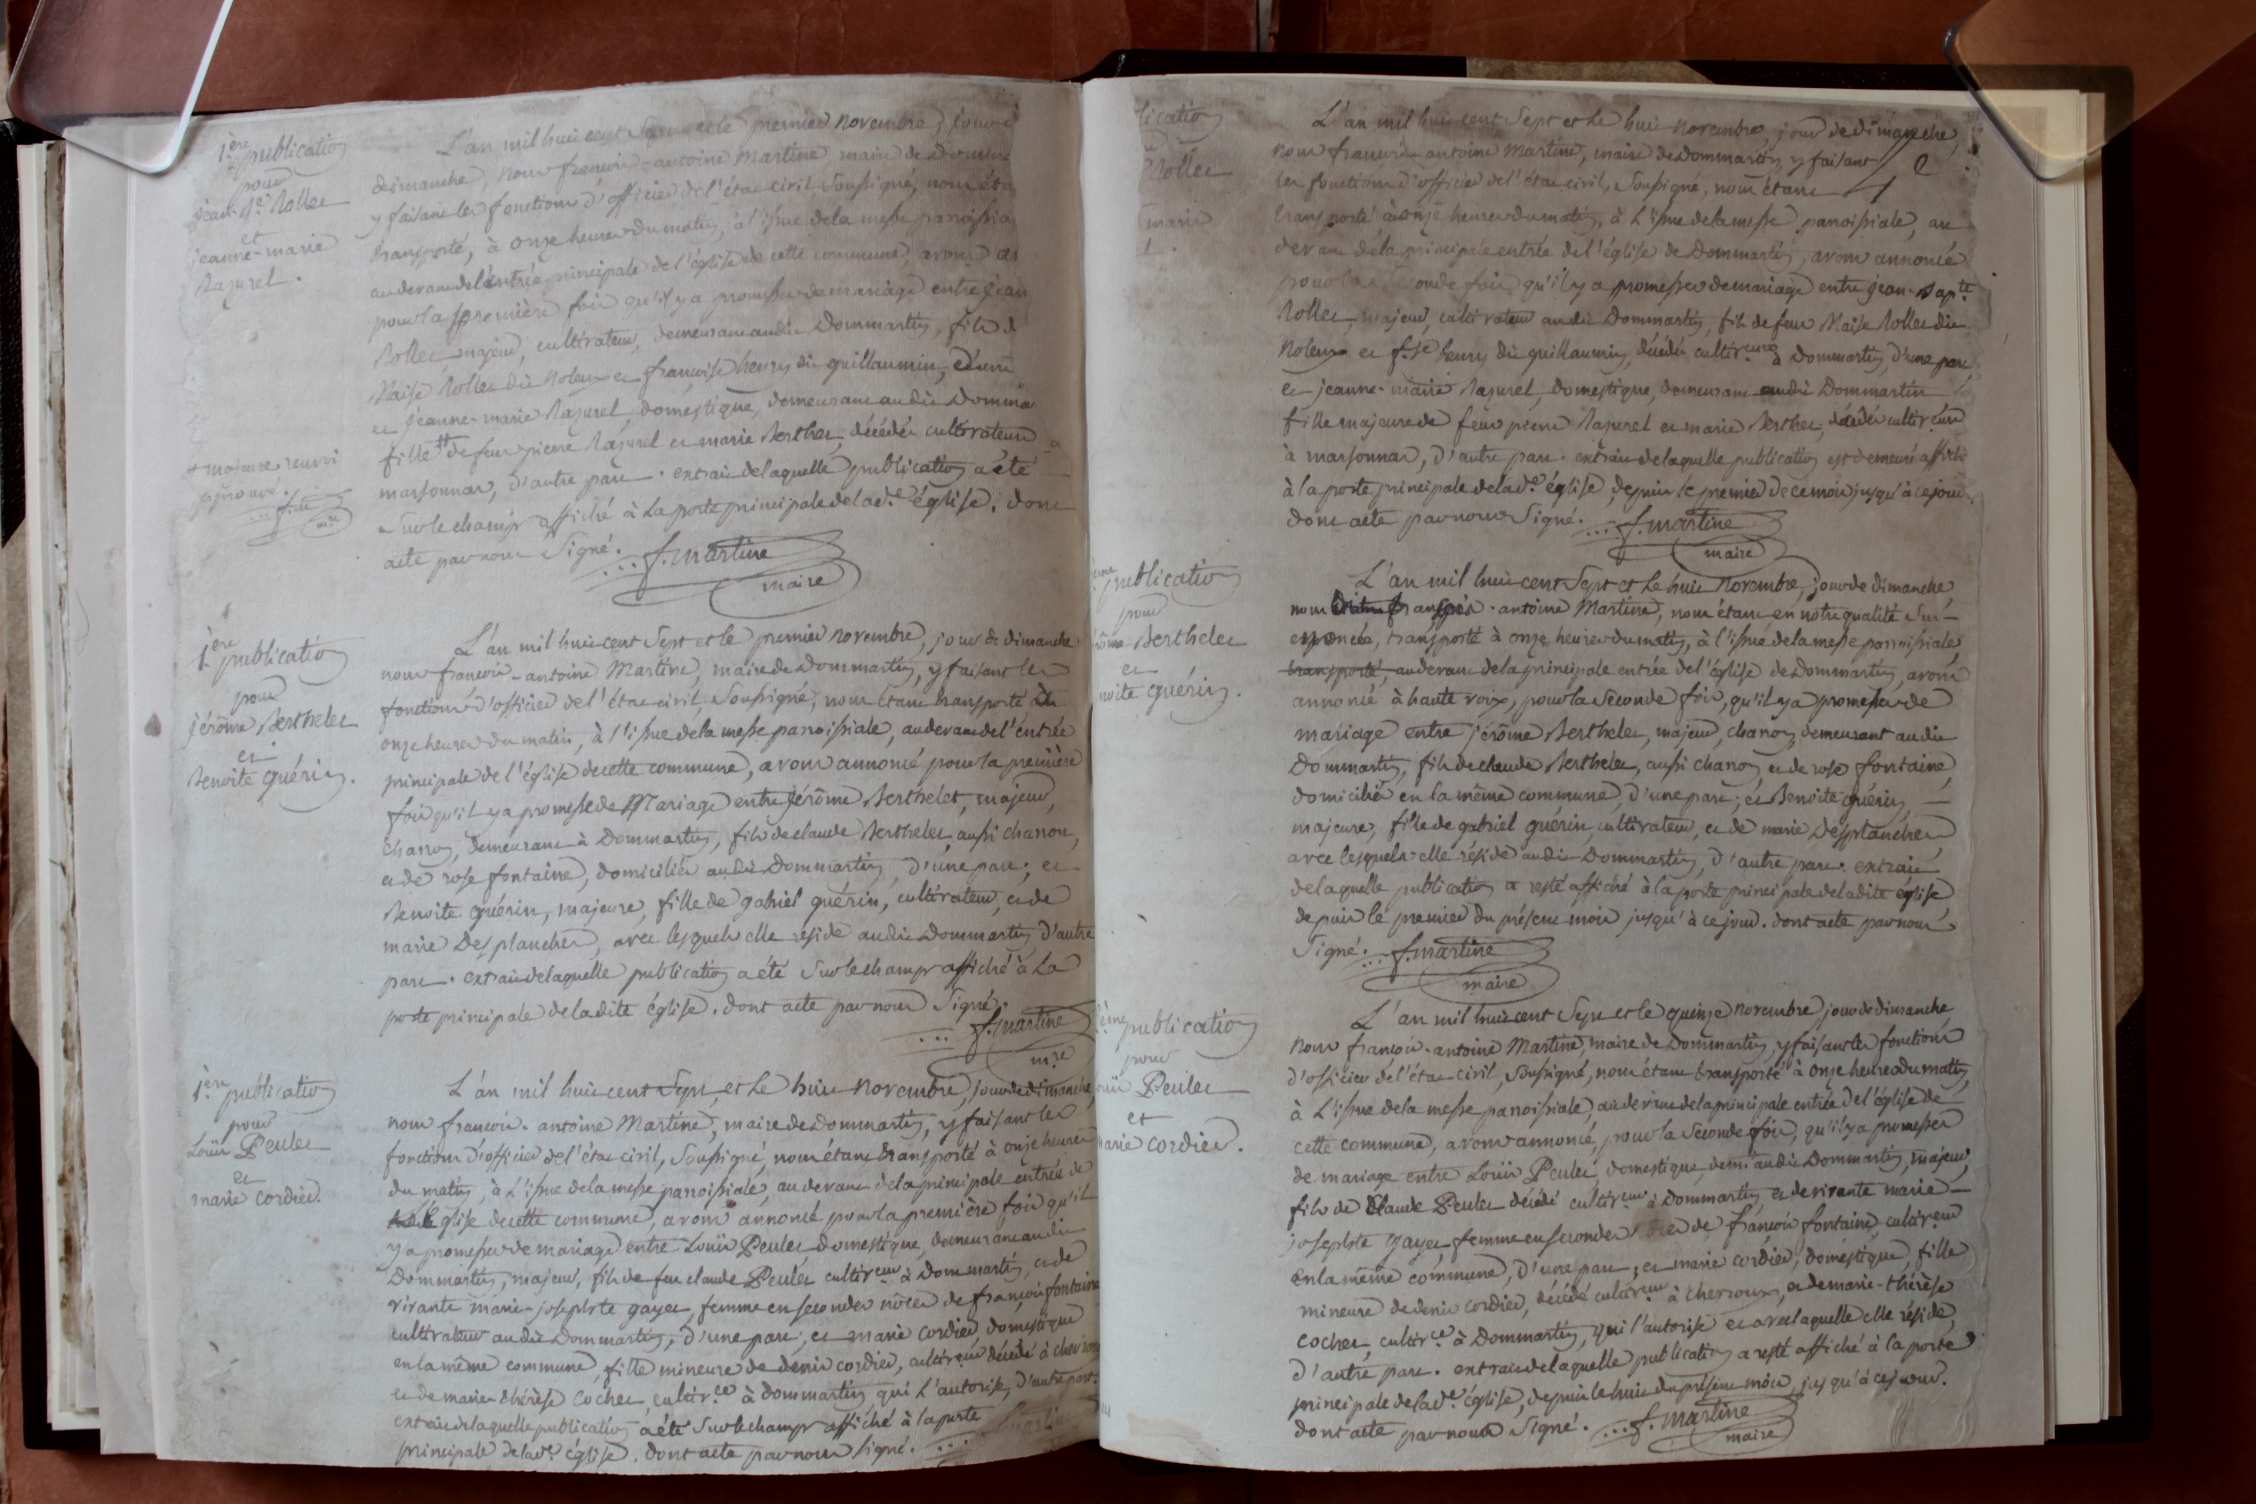 1ère publication
pour
jean-Bte Rollet
et
jeanne-marie
Razurel.
L'an mil huit cent Sept et le premier novembre, jour de
dimanche, nous francois-antoine Martine, maire de Dommartin
y faisant les fonctions d'officier de l'état civil Soussigné, nous étant
transporté, à onze heures du matin, à l'issue de la messe paroissiale
au devant de l'entrée principale de l'église de cette commune, avons
pour la première fois qu'il y a promesses de mariage entre jean
Rollet, majeur, cultivateur, demeurant audit Dommartin, fils de
Blaise Rollet dit Noleux et francoise henry dit guillaumin, d'une
et jeanne-marie Razurel, domestique, demeurant audit Dommar
fille # de feu pierre Razurel et marie Berthet, décédés cultivateurs à
marsonnas, d'autre part. extrait de laquelle publication a été
Sur le champ affiché à la porte principale de lade église. dont
acte par nous Signé. f. martine
maire
# majeure renvoi
approuvé.
mre
1ère publication
pour
jérôme Berthelet
et
Benoite guérin.
L'an mil huit cent Sept et le premier novembre, jour de dimanche
nous francois-antoine Martine, maire de Dommartin, y faisant les
fonctions d'officier de l'état civil, Soussigné, nous étant transporté à
onze heures du matin, à l'issue de la messe paroissiale, au devant de l'entrée
principale de l'église de cette commune, avons annoncé pour la première
fois qu'il y a promesse de Mariage entre jérôme Berthelet, majeur,
charon, demeurant à Dommartin, fils de claude Berthelet, aussi charon,
et de rose fontaine, domiciliés audit Dommartin, d'une part; et
Benoite guérin, majeure, fille de gabriel guérin, cultivateur, et de
marie Desplanches, avec lesquels elle réside audit Dommartin d'autre
part. extrait de laquelle publication a été Sur le champ affiché à la
porte principale de ladite église. dont acte par nous Signé.
f. martine
mre
1ère publication
pour
Louis Peulet
et
marie cordier.
L'an mil huit cent Sept et le huit novembre, jour de dimanche,
nous francois-antoine Martine, maire de Dommartin, y faisant les
fonctions d'officier de l'état civil, Soussigné, nous étant transporté à onze heures
du matin, à l'issue de la messe paroissiale, au devant de la principale entrée de
l'église de cette commune, avons annoncé pour la première fois qu'il
y a promesses de mariage entre Louis Peulet domestique, demeurant audit
Dommartin, majeur, fils de feu claude Peulet cultiveur à Dommartin, et de
vivante marie-josephte gayet, femme en secondes nôces de francois fontaine
cultivateur audit Dommartin, d'une part; et marie cordier, domestique
en la même commune, fille mineure de denis cordier, cultiveur décédé à chevroux
et de marie-thérèse cochet, cultivce à dommartin qui l'autorise, d'autre part.
extrait de laquelle publication a été Sur le champ affiché à la porte
principale de lade église. dont acte par nous Signé. f. martine
lication
Rollet
marie
L'an mil huit cent Sept et le huit novembre, jour de dimanche,
nous francois-antoine Martine, maire de Dommartin, y faisant
les fonctions d'officier de l'état civil, Soussigné, nous étant
transporté à onze heures du matin, à l'issue de la messe paroissiale, au
devant de la principale entrée de l'église de Dommartin, avons annoncé
pour la onde fois qu'il y a promesses de mariage entre jean-Bapte
Rollet, majeur, cultivateur audit Dommartin, fils de feu Blaise Rollet dit
Noleux et f.se henry dit guillaumin, décédés cultiveurs à Dommartin, d'une part,
et jeanne-marie Razurel, domestique, demeurant audit Dommartin
fille majeure de feu pierre Razurel et marie Berthet, décédés cultiveurs
à marsonnas, d'autre part. extrait de laquelle publication est demeuré affiché
à la porte principale de lade église, depuis le premier de ce mois jusqu'à ce jour.
dont acte par nous Signé. f. martine
maire
publication
pour
Berthelet
et
noite guérin.
L'an mil huit cent Sept et le huit Novembre, jour de dimanche
nous françois-antoine Martine, nous étant en notre qualité Sus-
énoncée, transporté à onze heures du matin, à l'issue de la messe paroissiale
transporté, au devant de la principale entrée de l'église de Dommartin, avons
annoncé à haute voix, pour la Seconde fois, qu'il y a promesses de
mariage entre jérôme Berthelet, majeur, charon, demeurant audit
Dommartin, fils de claude Berthelet, aussi charon, et de rose fontaine,
domiciliés en la même commune, d'une part; et Benoite guérin,
majeure, fille de gabriel guérin cultivateur, et de marie Desplanches
avec lesquels elle réside audit Dommartin, d'autre part. extrait
de laquelle publication a resté affiché à la porte principale de ladite église
depuis le premier du présent mois jusqu'à ce jour. dont acte par nous
Signé. f. martine
maire
ème publication
pour
Peulet
et
marie cordier.
L'an mil huit cent Sept et le quinze novembre jour de dimanche
Nous françois-antoine Martine, maire de Dommartin, y faisant les fonctions
d'officier de l'état civil, Soussigné, nous étant transporté à onze heures du matin,
à L'issue de la messe paroissiale, au devant de la principale entrée de l'église de
cette commune, avons annoncé, pour la Seconde fois, qu'il y a promesses
de mariage entre Louis Peulet, domestique, demt audit Dommartin, majeur,
fils de Claude Peulet décédé cultiveur à Dommartin, et de vivante marie
josephte gayet, femme en secondes de françois fontaine, cultiveur
en la même commune, d'une part; et marie cordier, domestique, fille
mineure de denis cordier, décédé cultiveur à chevroux, et de marie-thérèse
cochet, cultivce à Dommartin, qui l'autorise et avec laquelle elle réside,
d'autre part. extrait de laquelle publication a resté affiché à la porte
principale de lade église, depuis le huit du présent mois, jusqu'à ce jour.
dont acte par nous Signé. f. martine
maire